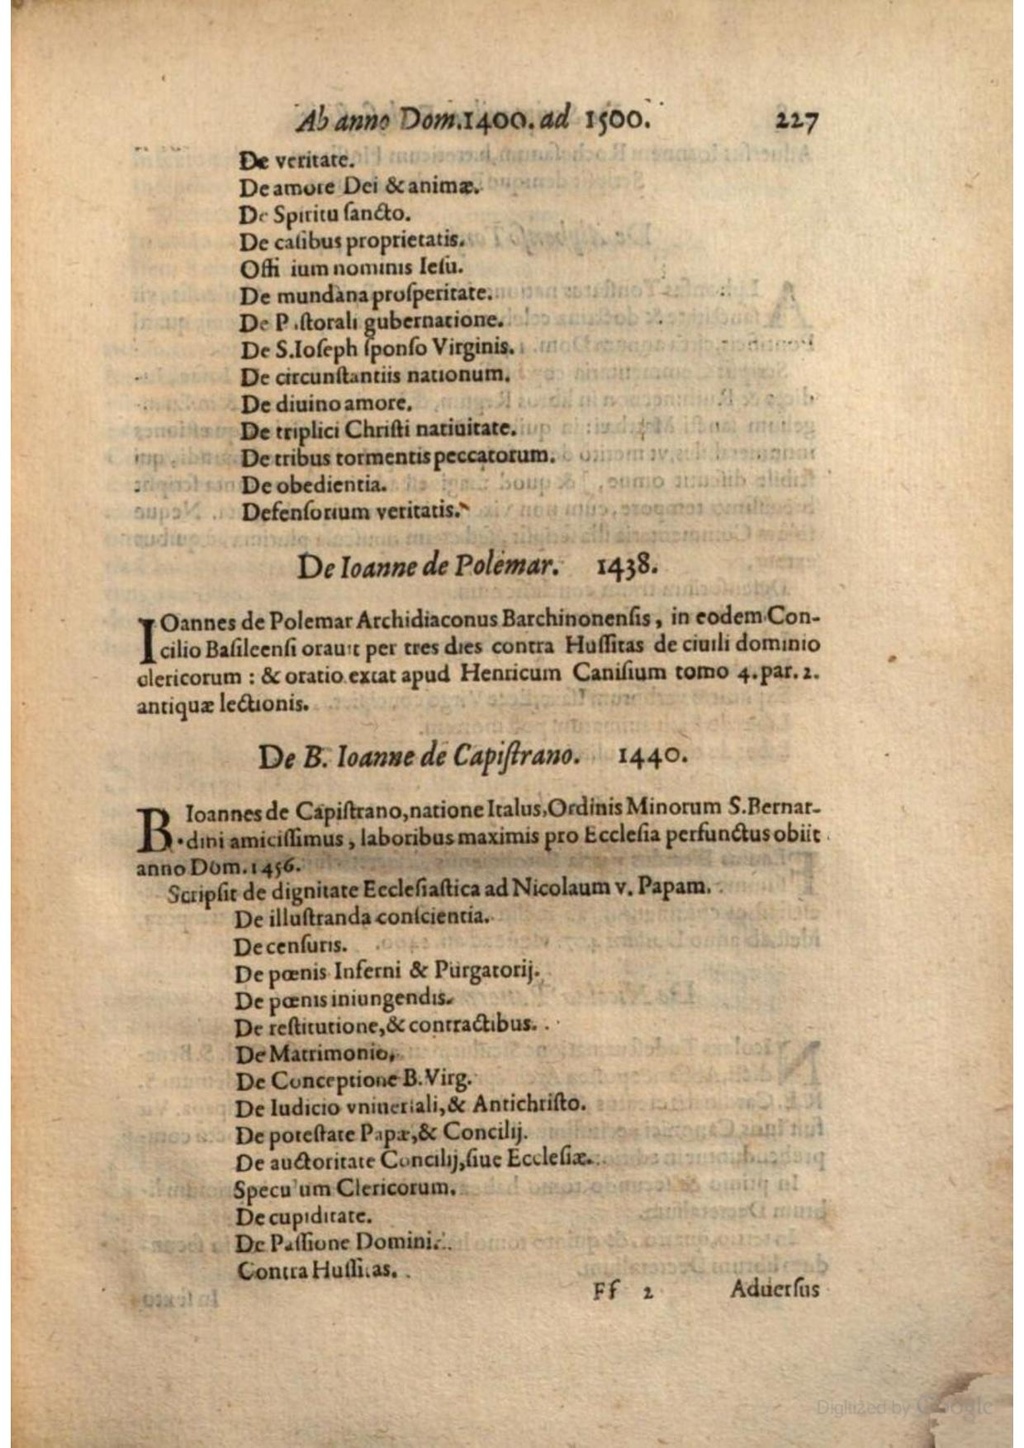 Ab anno Dom.1400. ad 1500. 227
De veritate.
De amore Dei & animæ.
De Spiritu ſancto.
De caſibus proprietatis.
Offi ium nominis Ieſu.
De mundana proſperitate.
De P ſtorali gubernatione.
De S.Ioſeph ſponſo Virginis.
De circunſtantiis nationum.
De diuino amore.
De triplici Chriſti natiuitate.
De tribus tormentis peccatorum.
De obedientia.
Defenſorium veritatis.
De Ioanne de Polemar. 1438.
IOannes de Polemar Archidiaconus Barchinonenſis, in eodem Con-
cilio Baſileenſi orauit per tres dies contra Huſſitas de ciuili dominio
clericorum : & oratio extat apud Henricum Caniſium tomo 4.par.2.
antiquæ lectionis.
De B. Ioanne de Capiſtrano. 1440.
B. Ioannes de Capiſtrano, natione Italus, Ordinis Minorum S.Bernar-
dini amiciſſimus, laboribus maximis pro Eccleſia perfunctus obiit
anno Dom.1456.
Scripſit de dignitate Eccleſiaſtica ad Nicolaum v. Papam.
De illuſtranda conſcientia.
De cenſuris.
De pœnis Inferni & Purgatorij.
De pœnis iniungendis.
De reſtitutione,& contractibus.
De Matrimonio,
De Conceptione B.Virg.
De Iudicio vniuerſali,& Antichriſto.
De poteſtate Papæ,& Concilij.
De auctoritate Concilij,ſiue Eccleſiæ.
Specu um Clericorum.
De cupiditate.
De Paſſione Domini.
Contra Huſſitas.
Ff 2 Aduerſus
Digitized by Google